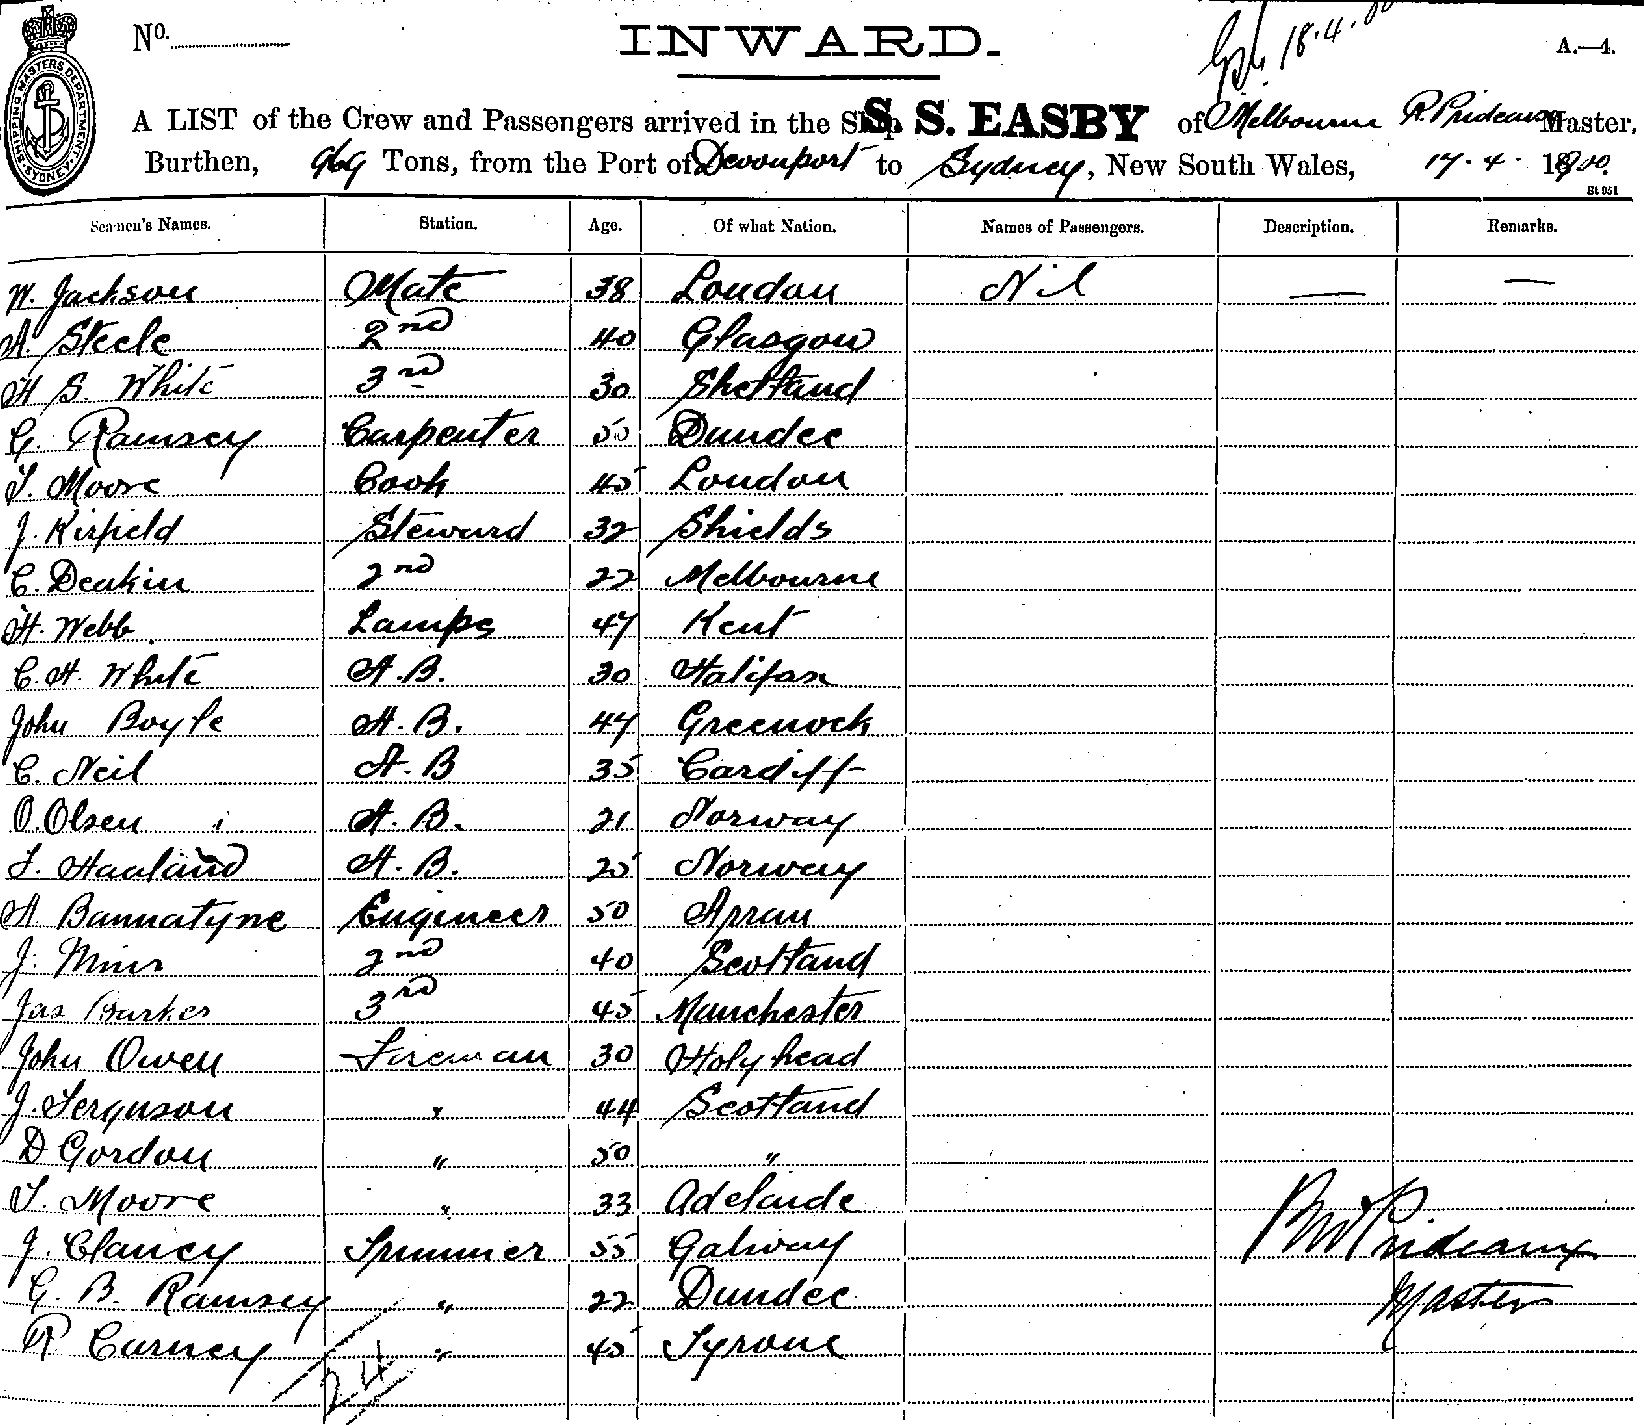 No.
INWARD.
18.4.00
A.—4.
SHIPPING MASTERS DEPARTMENT SYDNEY
A LIST of the Crew and Passengers arrived in the Ship S. S. EASBY of Melbourne R. Prideaux Master,
Burthen, 969 Tons, from the Port of Devonport to Sydney, New South Wales, 17.4.1900.
St 051
Seamen's Names. Station. Age. Of what Nation. Names of Passengers. Description. Remarks.
W. Jackson Mate 38 London Nil — —
A. Steele 2nd 40 Glasgow
H S. White 3rd 30 Shetland
G. Ramsey Carpenter 55 Dundee
T. Moore Cook 45 London
J. Kirfield Steward 32 Shields
C. Deakin 2nd 22 Melbourne
H. Webb. Lamps 47 Kent
C. H. White A.B. 30 Halifax
John Boyle A.B. 47 Greenock
C. Neil A.B 35 Cardiff
O. Olsen A.B. 21 Norway
T. Haaland A.B. 25 Norway
A Bannatyne Engineer 50 Arran
J. 2nd 40 Scotland
Jas Barker 3rd 45 Manchester
John Owen Fireman 30 Holyhead
J. Ferguson " 44 Scotland
D Gordon " 50 "
T. Moore " 33 Adelaide
J. Clancy Trimmer 55 Galway
G. B. Ramsey " 22 Dundee
R Curney " 45 Tyrone
Prideaux
Master
24